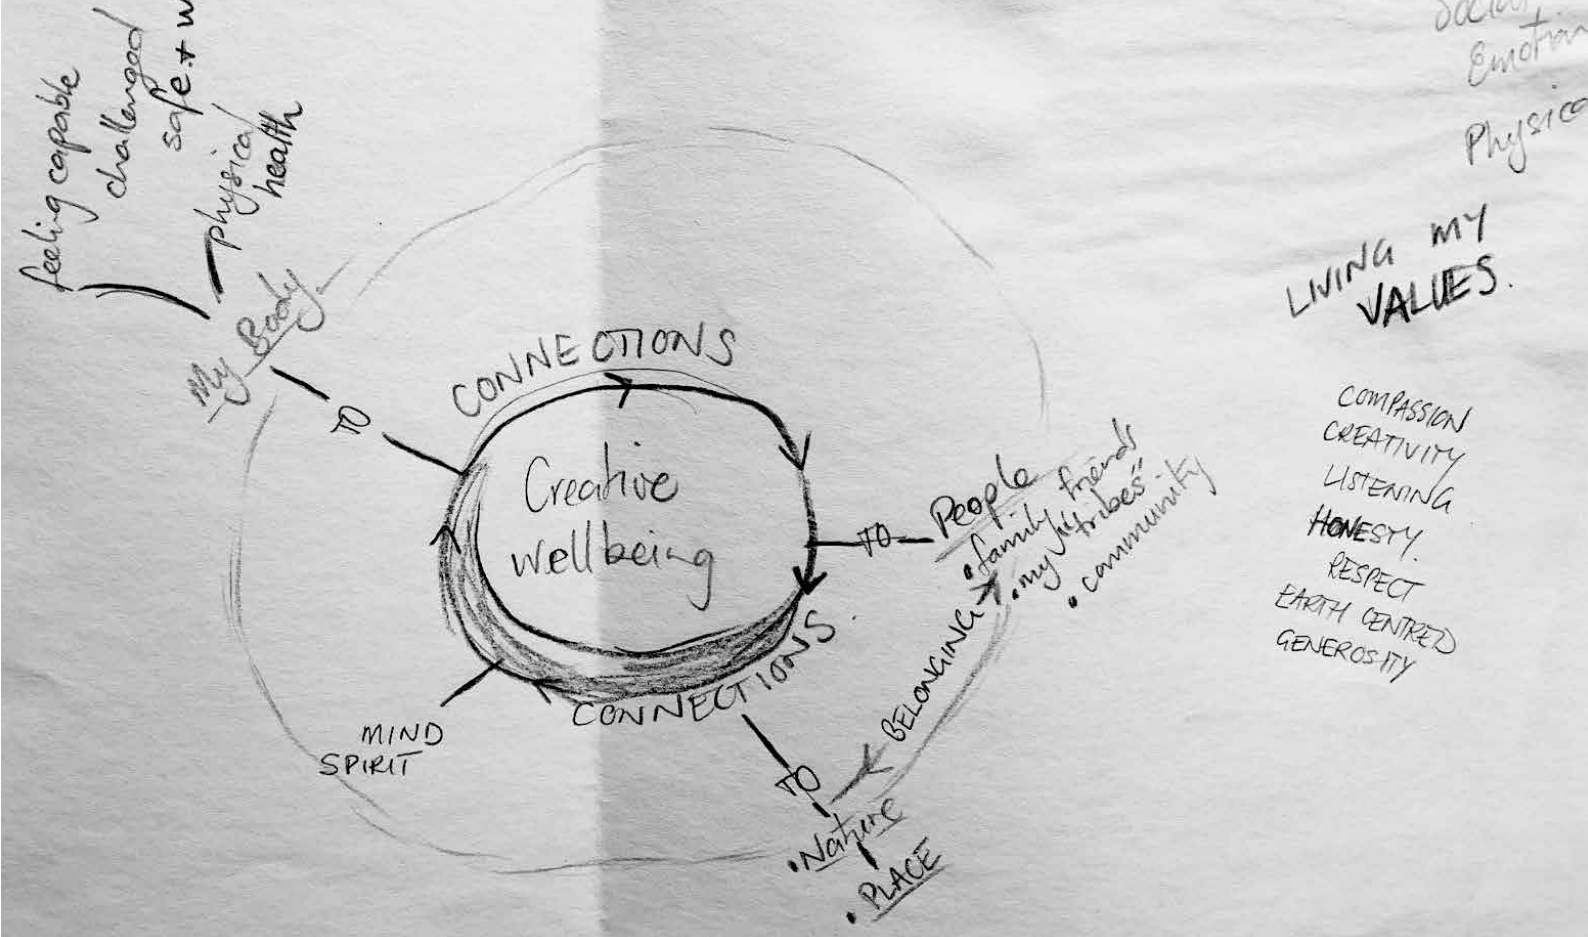 feeling capable
challenged
safe +
physical
health
My Body
TO
CONNECTIONS
Creative
wellbeing
CONNECTIONS
TO
People
• family friends
• my "tribes"
• community
BELONGING
TO
• Nature
• PLACE
MIND
SPIRIT
LIVING MY
VALUES.
COMPASSION
CREATIVITY
LISTENING
HONESTY.
RESPECT
EARTH CENTRED
GENEROSITY